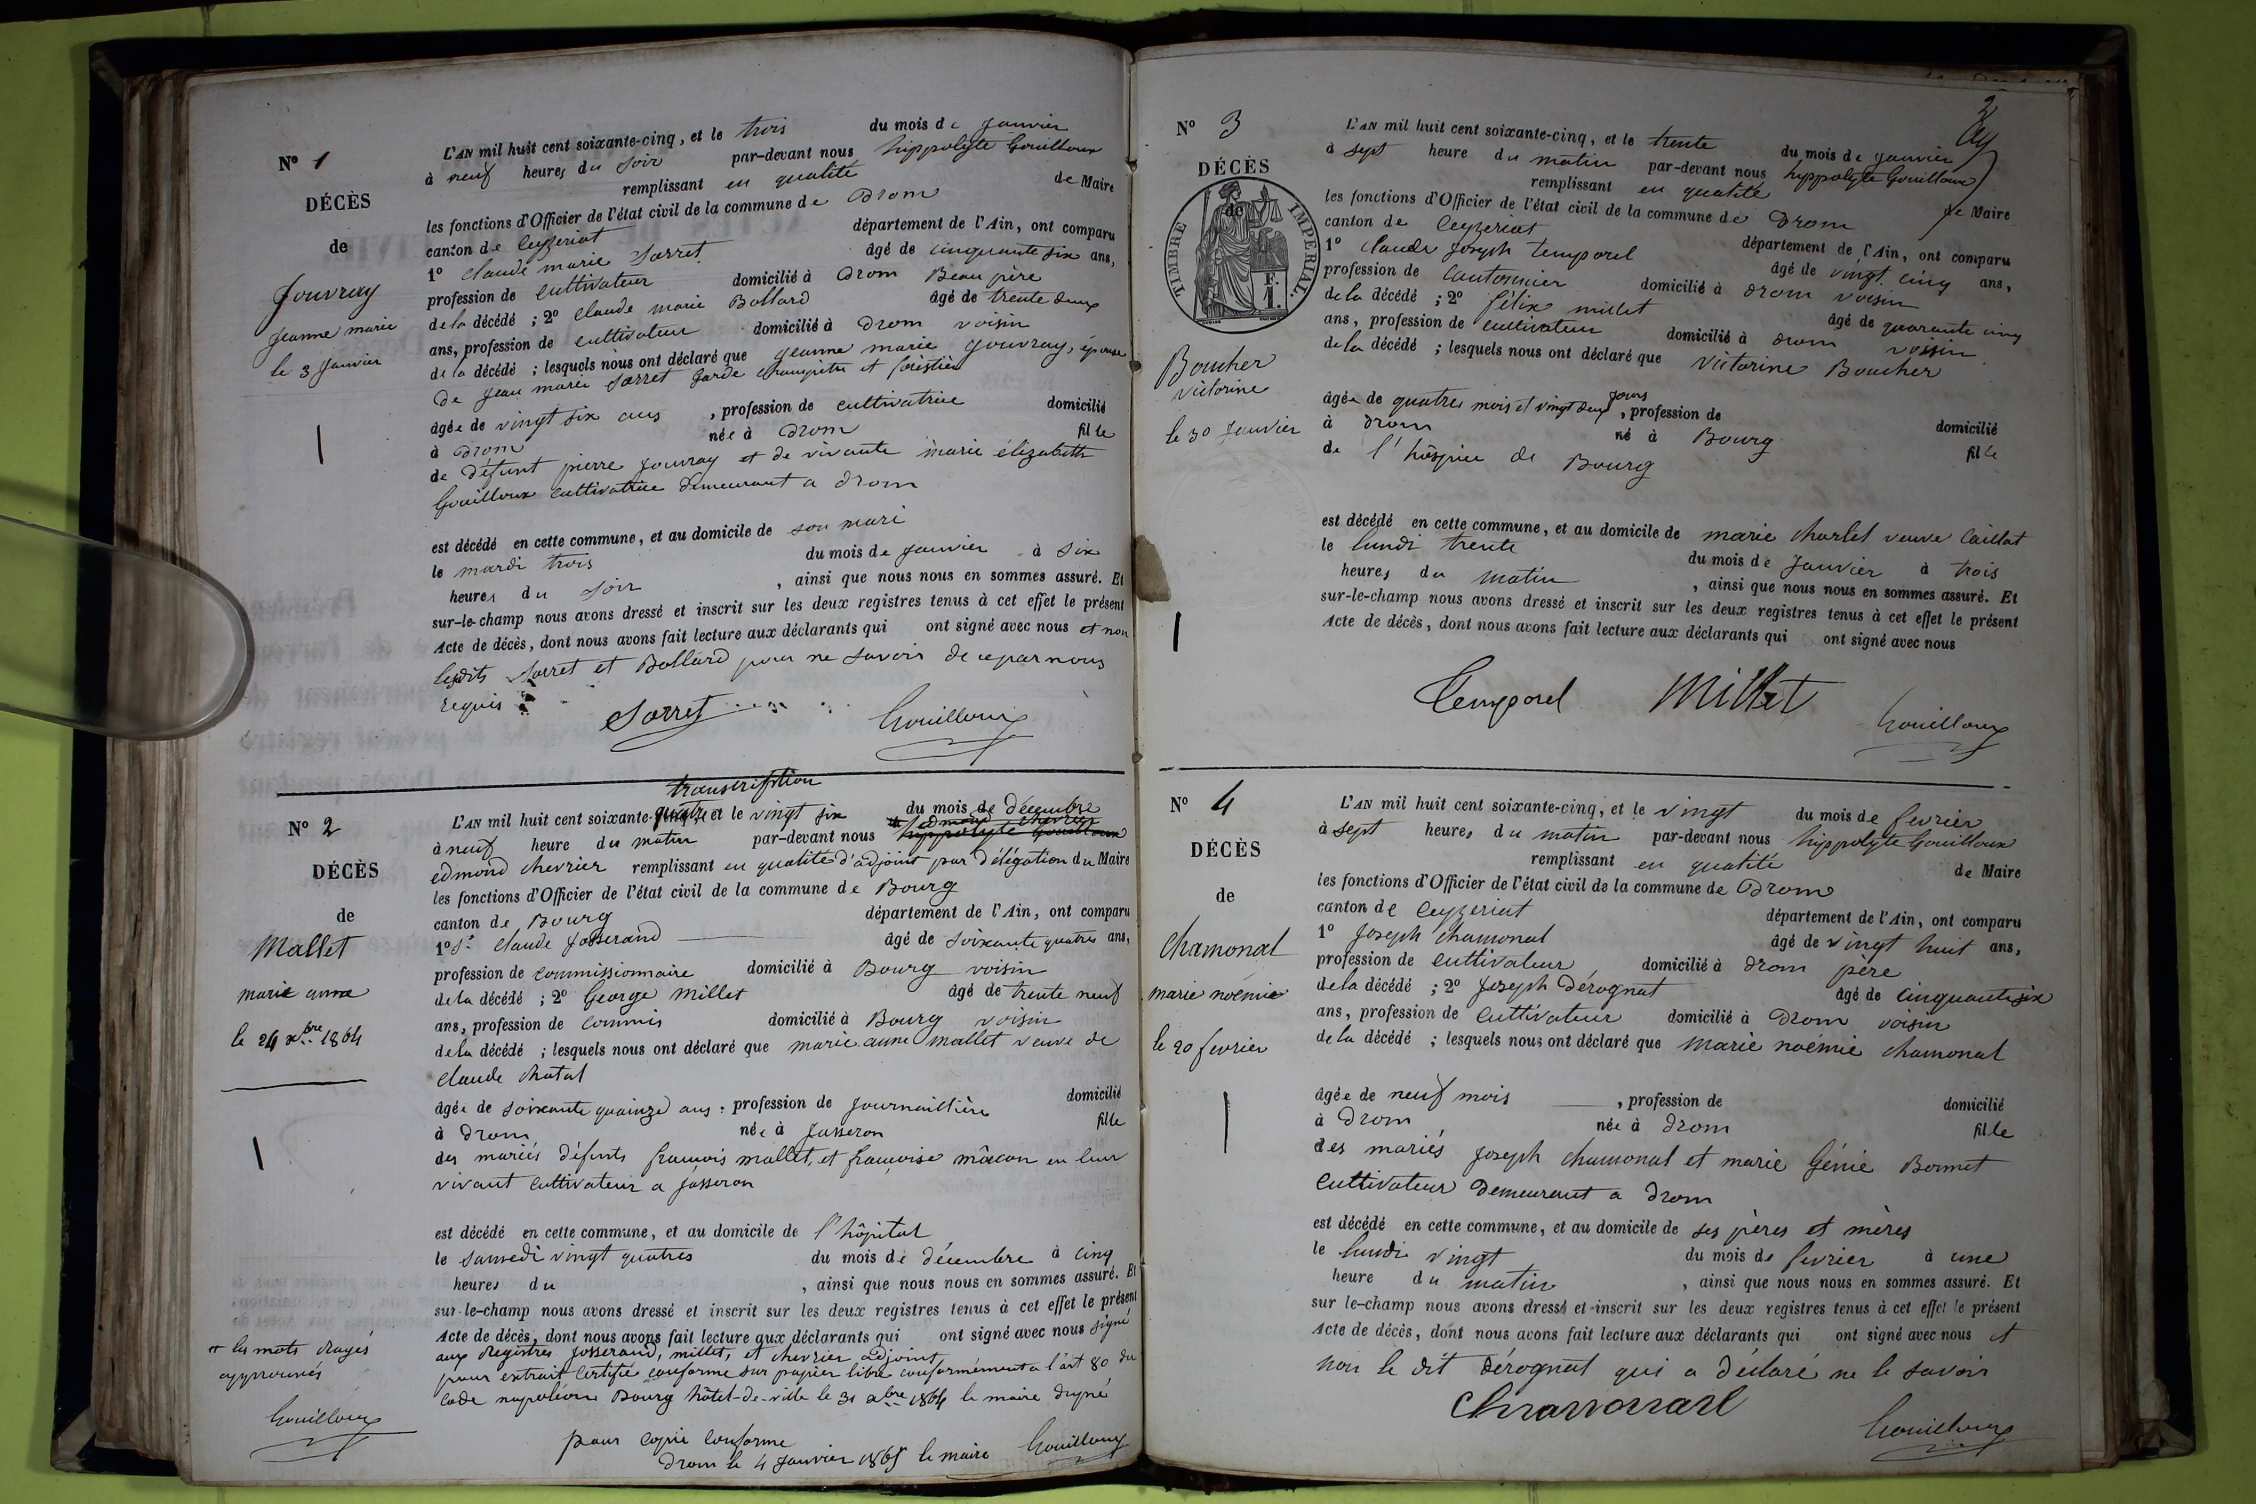 N° 1
DÉCÈS
de
Jouvray
Jeanne marie
le 3 Janvier
L'AN mil huit cent soixante-cinq, et le trois du mois de Janvier
à neuf heures du soir par-devant nous hippolyte Gouilloux
remplissant en qualité de Maire
les fonctions d'Officier de l'état civil de la commune de Drom
canton de Ceyzeriat département de l'Ain, ont comparu
1° Claude marie Sorret âgé de cinquante six ans,
profession de cultivateur domicilié à Drom Beau père
de la décédé ; 2° Claude marie Bollard âgé de trente deux
ans, profession de cultivateur domicilié à Drom voisin
de la décédé ; lesquels nous ont déclaré que Jeanne marie Jouvray, épouse
de Jean marie Sorret Garde champetre et forestier
âgée de vingt six ans, profession de cultivatrice domicilié
à Drom née à Drom fille
de Défunt pierre Jouvray et de vivante marie élizabeth
Gouilloux cultivatrice demeurant a Drom
est décédé en cette commune, et au domicile de son mari
le mardi trois du mois de Janvier à six
heures du soir, ainsi que nous nous en sommes assuré. Et
sur-le-champ nous avons dressé et inscrit sur les deux registres tenus à cet effet le présent
Acte de décès, dont nous avons fait lecture aux déclarants qui ont signé avec nous et non
lesdits Sorret et Bollard pour ne savoir de ce par nous
requis
Sorret Gouilloux
N° 2
DÉCÈS
de
Mallet
marie anne
le 24 xbre 1864
transcription
L'AN mil huit cent soixante-quatre et le vingt six du mois de décembre
à neuf heure du matin par-devant nous edmond chevrier hippolyte Gouilloux
edmond chevrier remplissant en qualité d'adjoint par délégation du Maire
les fonctions d'Officier de l'état civil de la commune de Bourg
canton de Bourg département de l'Ain, ont comparu
1° Sr Claude Josserand âgé de soixante quatre ans,
profession de commissionnaire domicilié à Bourg voisin
de la décédé ; 2° George Millet âgé de trente neuf
ans, profession de commis domicilié à Bourg voisin
de la décédé ; lesquels nous ont déclaré que marie anne Mallet veuve de
Claude Chatal
âgée de soixante quainze ans, profession de Journaillière domicilié
à Drom née à Jasseron fille
des mariés défunts francois mallet, et francoise mâcon en leur
vivant cultivateur a Jasseron
est décédé en cette commune, et au domicile de l'hôpital
le samedi vingt quatres du mois de décembre à cinq
heures du , ainsi que nous nous en sommes assuré. Et
sur-le-champ nous avons dressé et inscrit sur les deux registres tenus à cet effet le présent
Acte de décès, dont nous avons fait lecture aux déclarants qui ont signé avec nous signé
aux Registres Josserand, millet, et chevrier adjoint
pour extrait certifié conforme sur papier libre conformément a l'art 80 du
Code napoléon Bourg hôtel-de-ville le 31 xbre 1864 le maire signé
pour copie conforme
Drom le 4 Janvier 1865 le maire Gouilloux
les mots rayés
approuvés
Gouilloux
2
N° 3
DÉCÈS
de
TIMBRE IMPERIAL.
1 F.
Boucher
victorine
le 30 Janvier
L'AN mil huit cent soixante-cinq, et le trente du mois de Janvier
à sept heure du matin par-devant nous hippolyte Gouilloux
remplissant en qualité de Maire
les fonctions d'Officier de l'état civil de la commune de Drom
canton de Ceyzeriat département de l'Ain, ont comparu
1° Claude Joseph Temporel âgé de vingt cinq ans,
profession de Cantonnier domicilié à Drom voisin
de la décédé ; 2° félix millet âgé de quarante cinq
ans, profession de cultivateur domicilié à Drom voisin
de la décédé ; lesquels nous ont déclaré que Victorine Boucher
âgée de quatres mois et vingt deux Jours, profession de domicilié
à Drom né à Bourg fille
de l'hôspice de Bourg
est décédé en cette commune, et au domicile de marie charlet veuve Caillat
le lundi trente du mois de Janvier à trois
heures du matin, ainsi que nous nous en sommes assuré. Et
sur-le-champ nous avons dressé et inscrit sur les deux registres tenus à cet effet le présent
Acte de décès, dont nous avons fait lecture aux déclarants qui ont signé avec nous
Temporel Millet
Gouilloux
N° 4
DÉCÈS
de
Chamonal
marie noémie
le 20 fevrier
L'AN mil huit cent soixante-cinq, et le vingt du mois de fevrier
à sept heures du matin par-devant nous hippolyte Gouilloux
remplissant en qualité de Maire
les fonctions d'Officier de l'état civil de la commune de Drom
canton de Ceyzeriat département de l'Ain, ont comparu
1° Joseph Chamonal âgé de vingt huit ans,
profession de cultivateur domicilié à Drom père
de la décédé ; 2° Joseph Dérognat âgé de cinquante six
ans, profession de Cultivateur domicilié à Drom voisin
de la décédé ; lesquels nous ont déclaré que Marie noemie chamonal
âgée de neuf mois, profession de domicilié
à Drom née à Drom fille
des mariés Joseph Chamonal et marie Génie Bonnet
Cultivateur Demeurant a Drom
est décédé en cette commune, et au domicile de ses pères et mères
le lundi vingt du mois de fevrier à une
heure du matin, ainsi que nous nous en sommes assuré. Et
sur le-champ nous avons dressé et inscrit sur les deux registres tenus à cet effet le présent
Acte de décès, dont nous avons fait lecture aux déclarants qui ont signé avec nous et
non le dit Dérognat qui a déclaré ne le savoir
Chamonal
Gouilloux